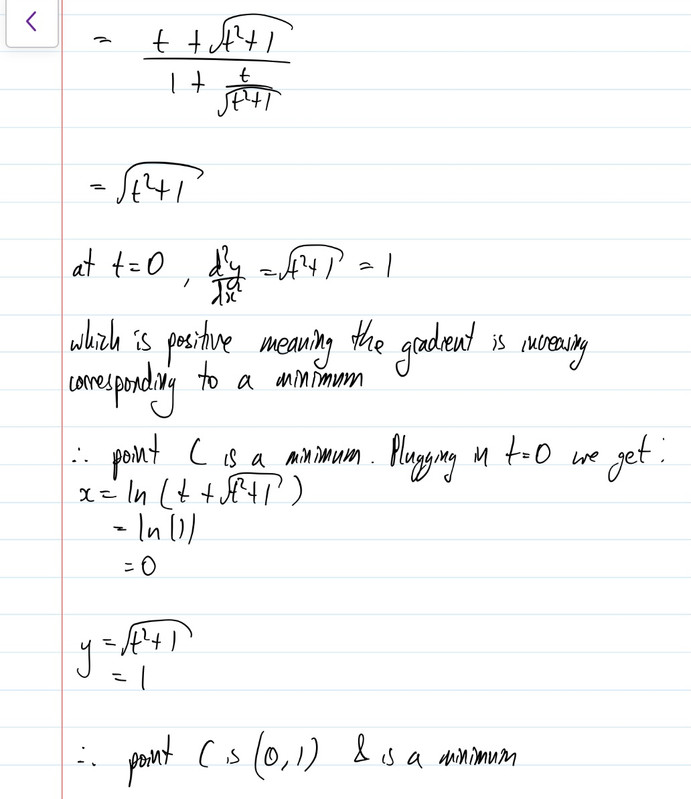 = (t + √(t²+1)) / (1 + t/√(t²+1))
= √(t²+1)
at t=0 , d²y/dx² = √(t²+1) = 1
which is positive meaning the gradient is increasing
corresponding to a minimum
∴ point C is a minimum. Plugging in t=0 we get :
x = ln (t + √(t²+1))
= ln(1)
= 0
y = √(t²+1)
= 1
∴ point C is (0,1) & is a minimum